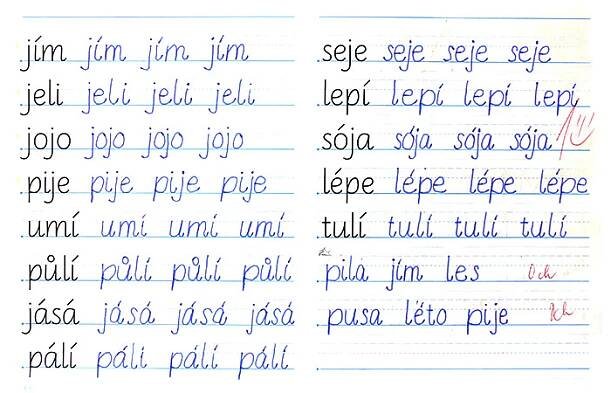 jím jím jím jím
jeli jeli jeli jeli
jojo jojo jojo jojo
pije pije pije pije
umí umí umí umí
půlí půlí půlí půlí
jásá jásá jásá jásá
pálí páli páli pálí
seje seje seje seje
lepí lepí lepí lepí
sója sója sója sója
lépe lépe lépe lépe
tulí tulí tulí tulí
pila jím les 0ch
pusa léto pije